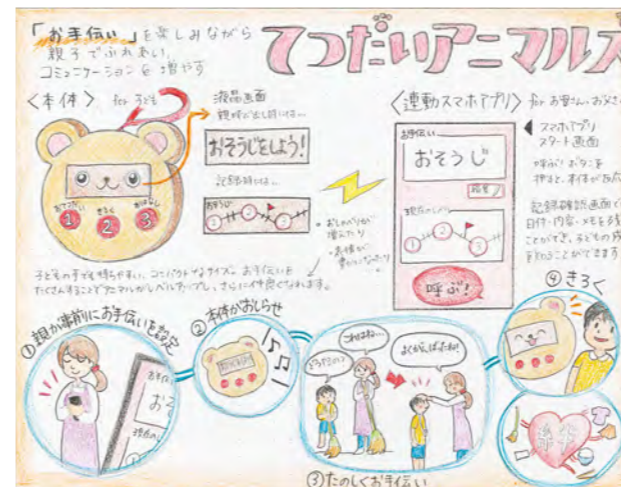 「お手伝い」を楽しみながら
親子でふれあい、
コミュニケーションを増やす
てつだいアニマルズ
〈本体〉 for 子ども
液晶画面
親呼び出し時には…
おそうじをしよう!
記録時には…
おそうじ
1 2 3
おてつだい
きろく
おはなし
1 2 3
・おしゃべりが
増えたり
・表情が
豊かになったり
子どもの手でも持ちやすい、コンパクトなサイズ。お手伝いを
たくさんすることでアニマルがレベルアップし、さらに仲良くなれます。
〈連動スマホアプリ〉 for お母さん、お父さ
お手伝い
おそうじ
現在のレベル
1 2 3
呼ぶ!
◀ スマホアプリ
スタート画面
呼ぶ!ボタンを
押すと、本体が反応
記録確認画面で
日付・内容・メモを残
ことができ、子どもの成
を知ることができます
①親が事前にお手伝いを設定
②本体がおしらせ
どうだい?
これはね…
よくがんばったね!
③たのしくお手伝い
④きろく
絆